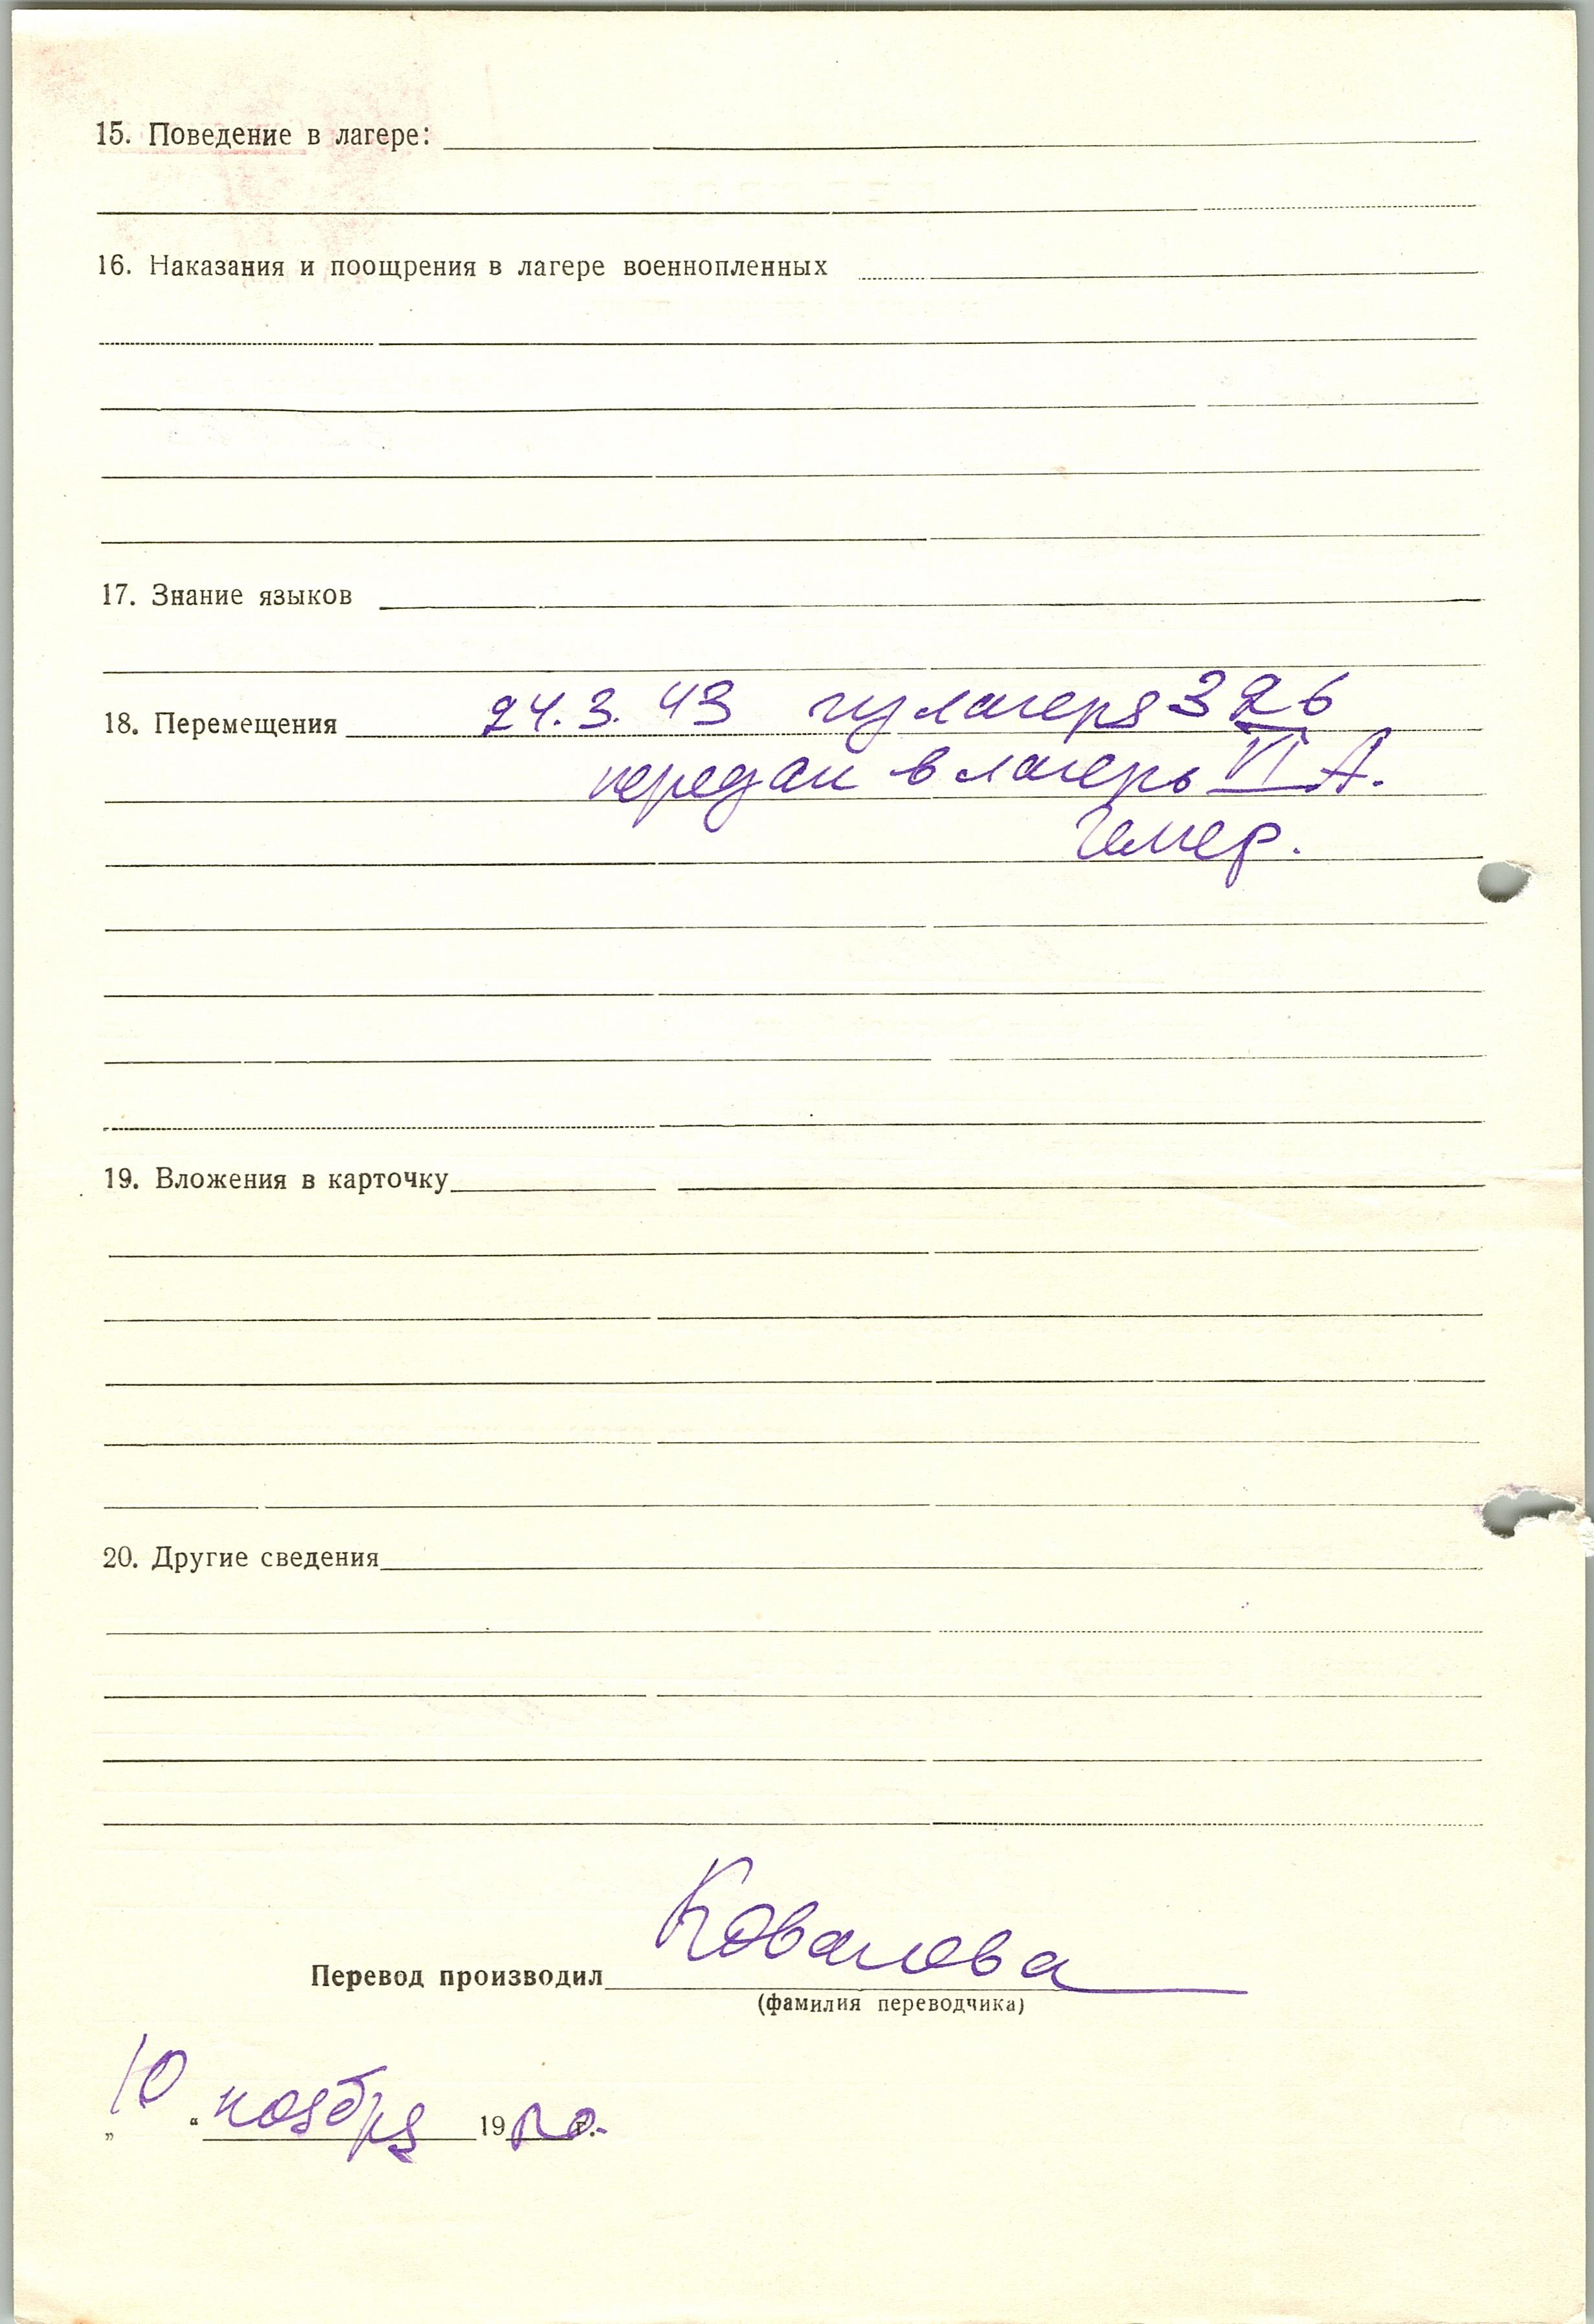 15. Поведение в лагере:
16. Наказания и поощрения в лагере военнопленных
17. Знание языков
18. Перемещения 24.3.43 из лагеря 326
передан в лагерь VI А.
19. Вложения в карточку
20. Другие сведения
Ковалева
Перевод производил
(фамилия переводчика)
„10“ ноября 19 г.